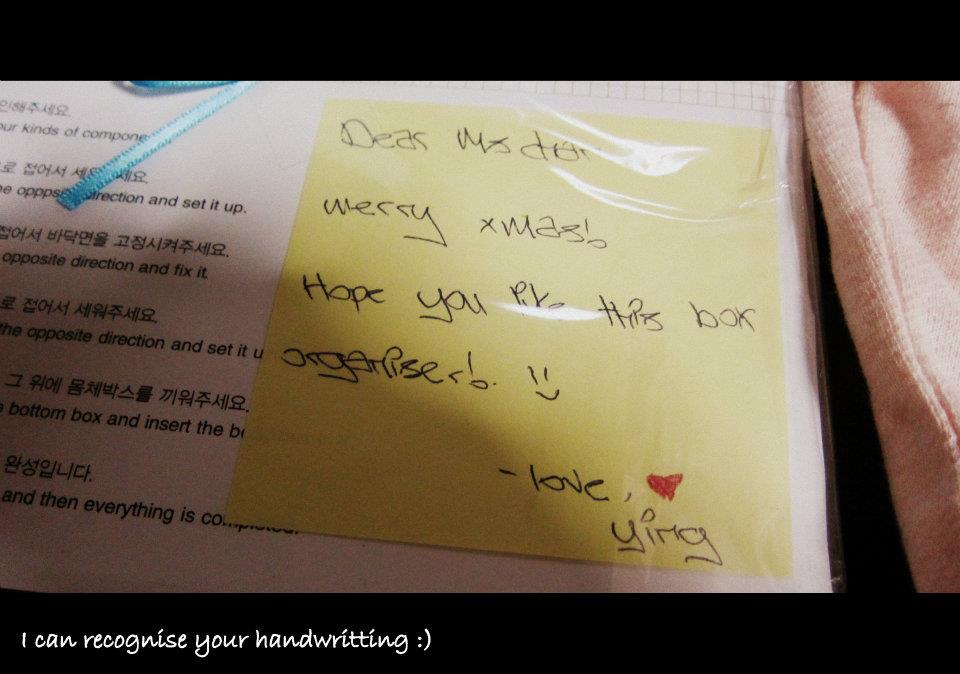 인해주세요.
our kinds of compone
로 접어서 세워 세요.
e oppps direction and set it up.
접어서 바닥면을 고정시켜주세요.
opposite direction and fix it.
로 접어서 세워주세요.
the opposite direction and set it u
그 위에 몸체박스를 끼워주세요.
bottom box and insert the b
완성입니다.
and then everything is completed.
Dear Ms
merry xmas!
Hope you like this box
organiser!. :)
- love, ♥
ying
I can recognise your handwritting :)